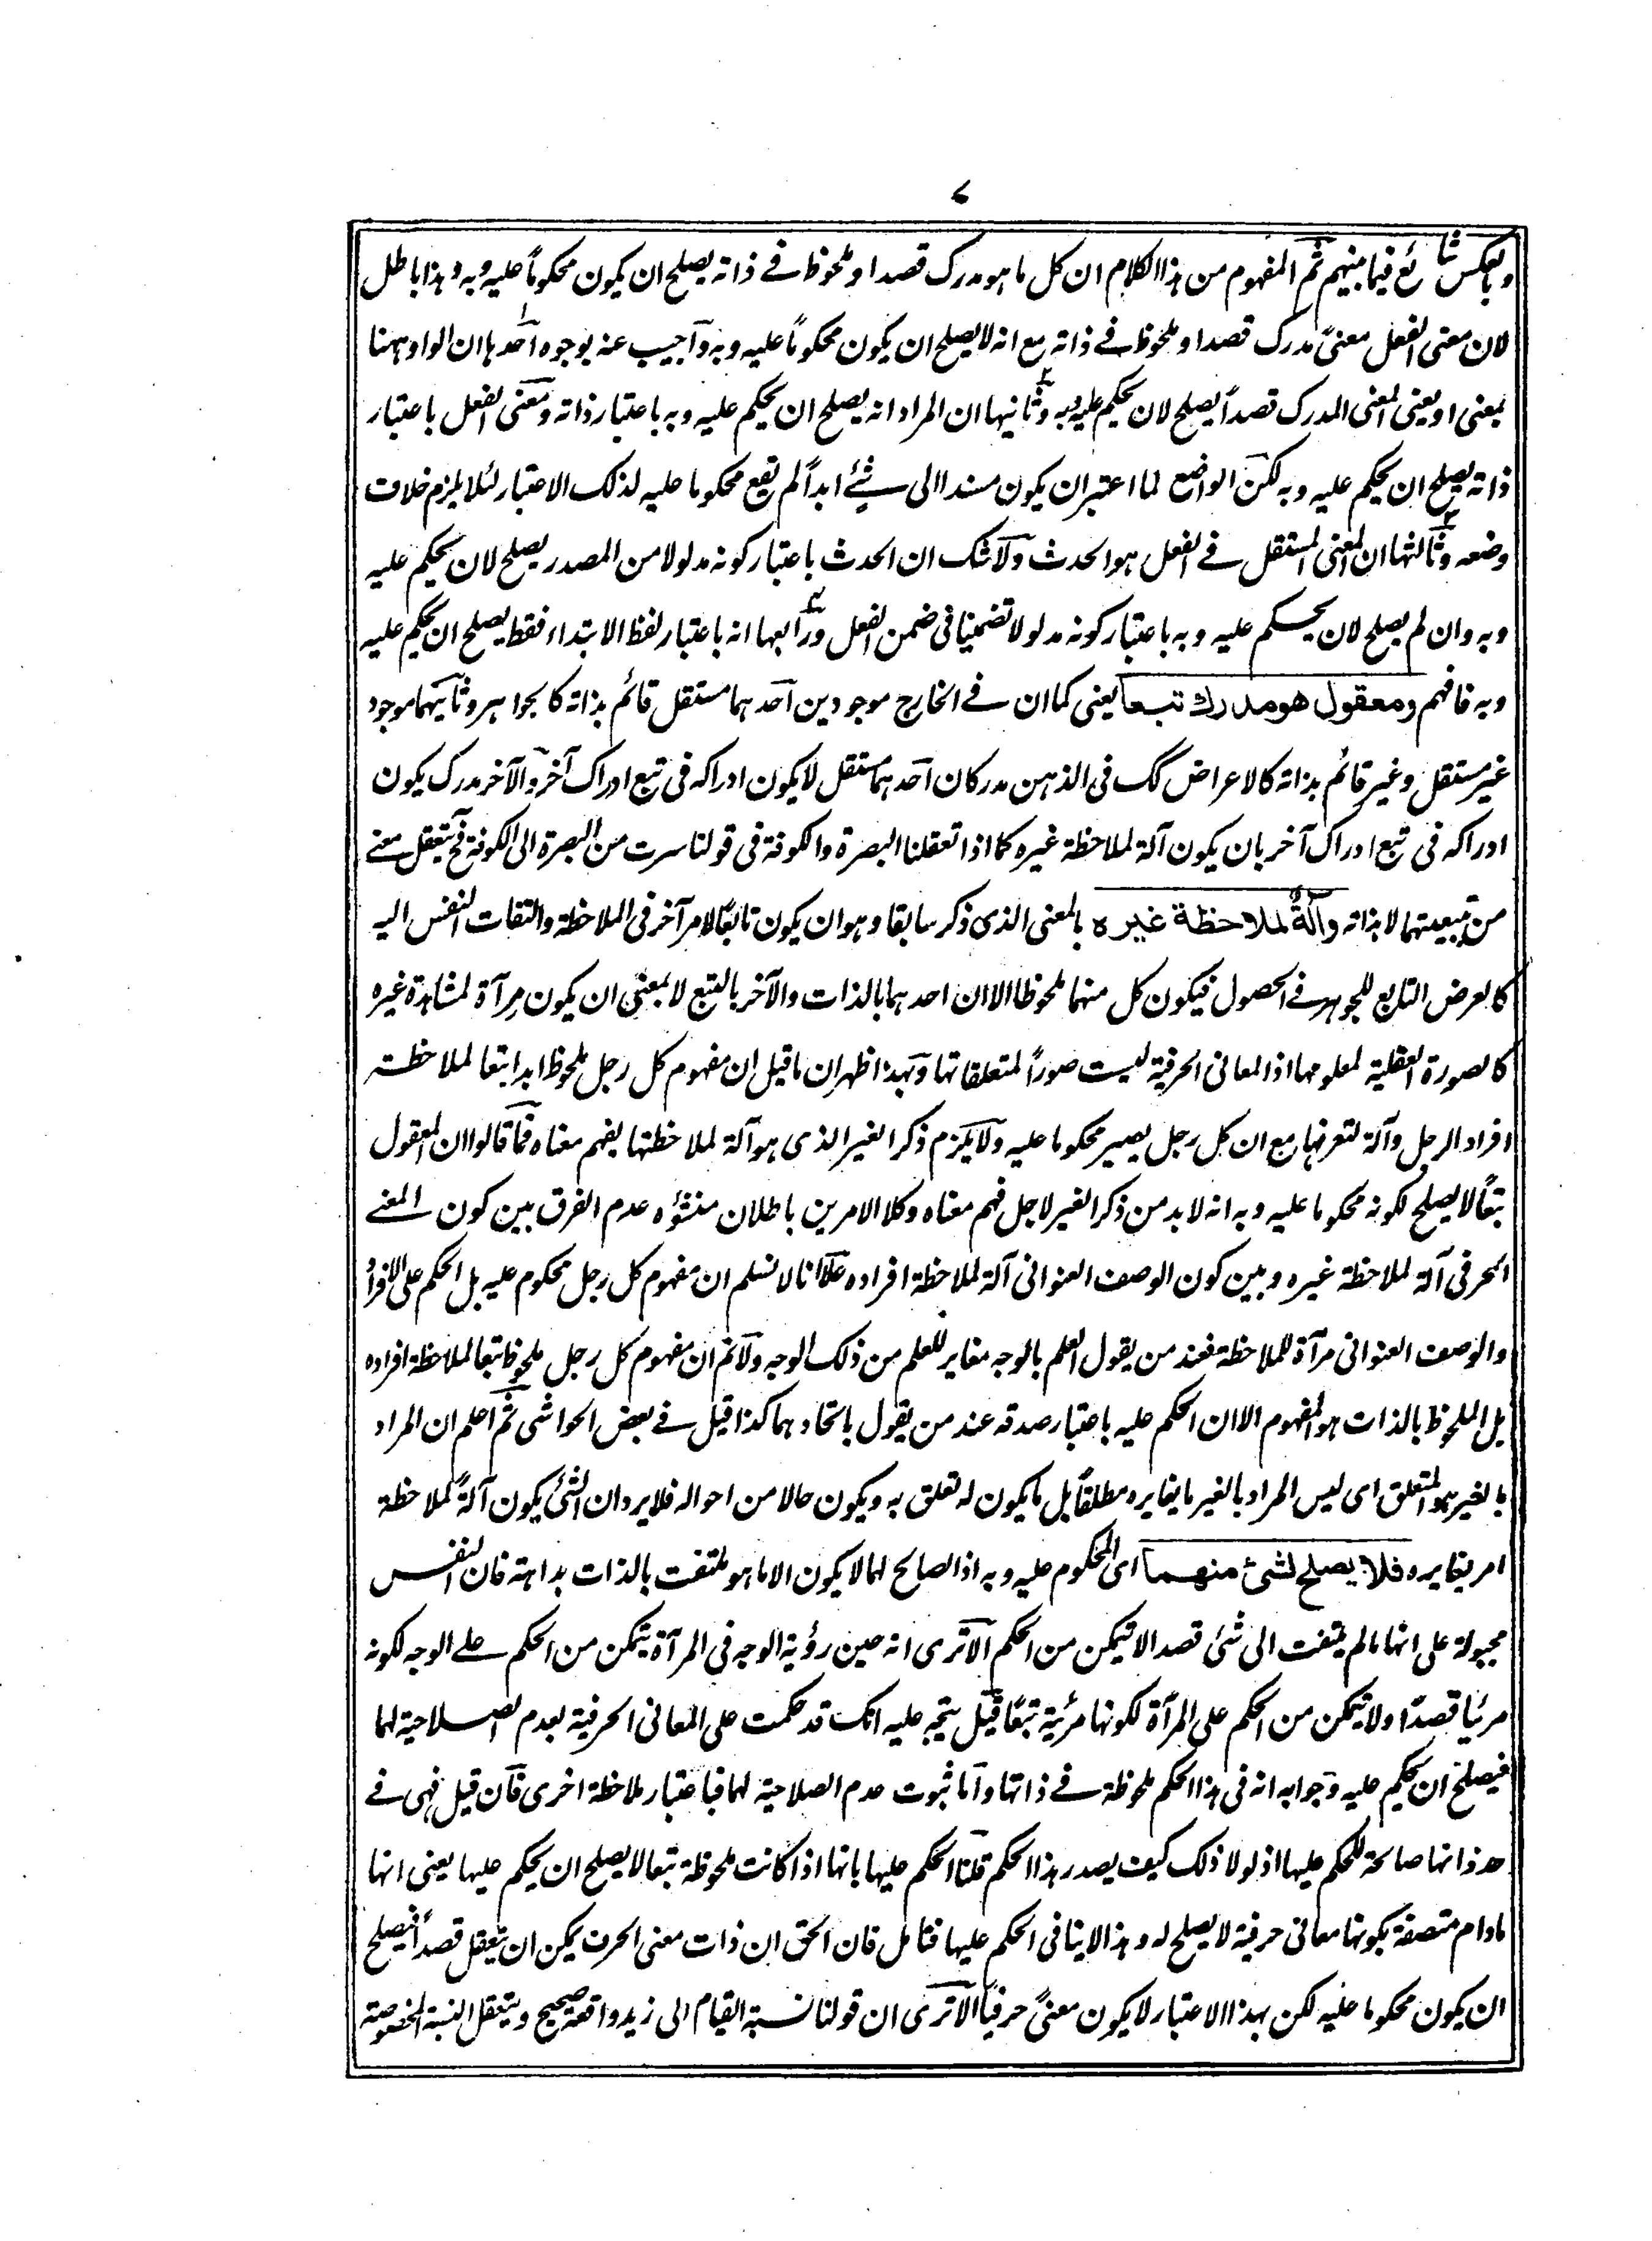 ۷
وبالعكس شائع فيما بينهم ثم المفهوم من هذا الكلام ان كل ما هو مدرك قصدا و ملحوظ فے ذاته يصلح ان يكون محكوماً عليه وبه وهذا باطل
لان معنى الفعل معنىً مدرك قصدا و ملحوظ فے ذاته مع انه لا يصلح ان يكون محكوماً عليه وبه وآجيب عنه بوجوه احدها ان الواو ههنا
بمعنى او يعنى المعنى المدرك قصداً يصلح لان يحكم عليه وبه وثانيها ان المراد انه يصلح ان يحكم عليه وبه باعتبار ذاته ومعنى الفعل باعتبار
ذاته يصلح ان يحكم عليه وبه لكن الواضع لما اعتبر ان يكون مسندا الى شئے ابداً لم يقع محكوما عليه لذلك الاعتبار لئلا يلزم خلاف
وضعه وثالثها ان المعنى المستقل فے الفعل هو الحدث ولا شك ان الحدث باعتبار كونه مدلولا من المصدر يصلح لان يحكم عليه
وبه وان لم يصلح لان يحكم عليه وبه باعتبار كونه مدلولا تضمينا فى ضمن الفعل ورابعها انه باعتبار لفظ الابتداء فقط يصلح ان يحكم عليه
وبه فافهم ومعقول هو مدرك تبعا يعنى كما ان فے الخارج موجودين احدهما مستقل قائم بذاته كالجواهر وثانيهما موجود
غير مستقل وغير قائم بذاته كالاعراض كك فى الذهن مدركان احدهما مستقل لا يكون ادراكه فى تبع ادراك آخر والآخر مدرك يكون
ادراكه فى تبع ادراك آخر بان يكون آلة لملاحظة غيره كما اذا تعقلنا البصرة والكوفة فى قولنا سرت من البصرة الى الكوفة فح يتعقل معنے
من تبعيتهما لا بذاته وآلةٌ لملاحظة غيره بالمعنى الذى ذكر سابقا وهو ان يكون تابعًا لامر آخر فى الملاحظة والتفات النفس اليه
كالعرض التابع للجوهر فے الحصول فيكون كل منهما ملحوظا الا ان احدهما بالذات والآخر بالتبع لا بمعنى ان يكون مرآة لمشاهدة غيره
كالصورة العقلية لمعلومها اذ المعانى الحرفية ليست صوراً لمتعلقاتها وبهذا ظهر ان ما قيل ان مفهوم كل رجل ملحوظ ابدا تبعا لملاحظة
افراد الرجل وآلة لتعرفها مع ان كل رجل يصير محكوما عليه ولا يلزم ذكر الغير الذى هو آلة لملاحظتها يفهم معناه فما قالوا ان المعقول
تبعاً لا يصلح لكونه محكوما عليه وبه انه لا بد من ذكر الغير لاجل فهم معناه وكلا الامرين باطلان منشؤه عدم الفرق بين كون المعنے
الحرفى آلة لملاحظة غيره وبين كون الوصف العنوانى آلة لملاحظة افراده علا انا لا نسلم ان مفهوم كل رجل محكوم عليه بل الحكم على الافراد
والوصف العنوانى مرآة للملاحظة فعند من يقول العلم بالوجه مغاير للعلم من ذلك الوجه ولا نم ان مفهوم كل رجل ملحوظ تبعا لملاحظة افراده
بل الملحوظ بالذات هو المفهوم الا ان الحكم عليه باعتبار صدقه عند من يقول باتحادهما كذا قيل فے بعض الحواشى ثم اعلم ان المراد
بالغير هو المتعلق اى ليس المراد بالغير ما يغايره مطلقاً بل ما يكون له تعلق به ويكون حالا من احواله فلا يرد ان الشئ يكون آلةً لملاحظة
امر يغايره فلا يصلح لشئ منهما اى المحكوم عليه وبه اذ الصالح لهما لا يكون الا ما هو ملتفت بالذات بداهة فان النفس
مجبولة على انها ما لم يلتفت الى شئ قصدا لا تتمكن من الحكم الا ترى انه حين رؤية الوجه فى المرآة يتمكن من الحكم علے الوجه لكونه
مرئيا قصداً ولا تتمكن من الحكم على المرآة لكونها مرئية تبعًا قيل يتجه عليه انك قد حكمت على المعانى الحرفية بعدم الصلاحية لهما
فيصلح ان يحكم عليه وجوابه انه فى هذا الحكم ملحوظة فے ذاتها وآما ثبوت عدم الصلاحية لهما فباعتبار ملاحظة اخرى فآن قيل فهى فے
حد ذاتها صالحة للحكم عليها اذ لولا ذلك كيف يصدر هذا الحكم قلنا الحكم عليها بانها اذا كانت ملحوظة تبعا لا يصلح ان يحكم عليها يعنى انها
مادام متصفة بكونها معانى حرفية لا يصلح له وهذا لا ينافى الحكم عليها فتامل فان الحق ان ذات معنى الحرف يمكن ان يتعقل قصداً فيصلح
ان يكون محكوما عليه لكن بهذا الاعتبار لا يكون معنىً حرفياً الا ترى ان قولنا نسبة القيام الى زيد واقعة صحيح ويتعقل النسبة المخصوصة